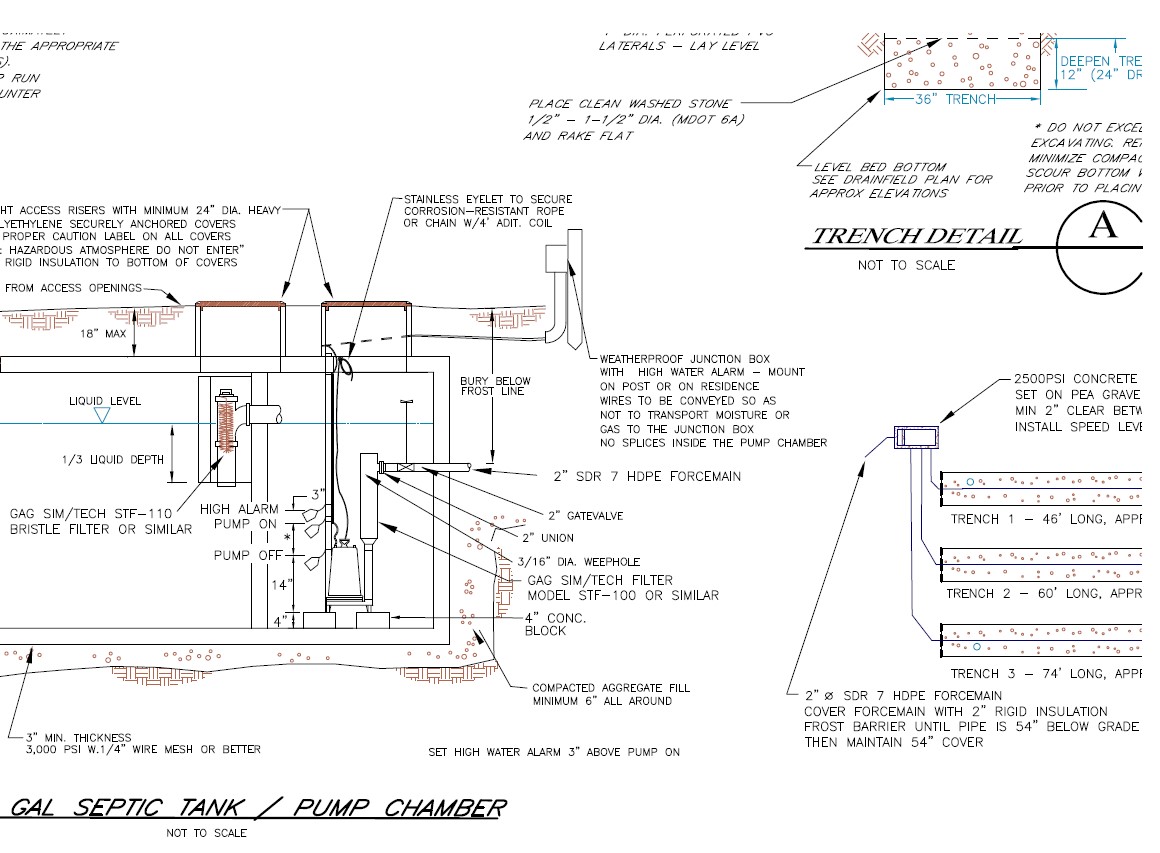 THE APPROPRIATE
RUN
LATERALS – LAY LEVEL
PLACE CLEAN WASHED STONE
1/2" – 1–1/2" DIA. (MDOT 6A)
AND RAKE FLAT
36" TRENCH
DEEPEN TRE
12" (24" DR
LEVEL BED BOTTOM
SEE DRAINFIELD PLAN FOR
APPROX ELEVATIONS
* DO NOT EXCE
EXCAVATING. RE
MINIMIZE COMPAC
SCOUR BOTTOM W
PRIOR TO PLACIN
TRENCH DETAIL
A
NOT TO SCALE
HT ACCESS RISERS WITH MINIMUM 24" DIA. HEAVY
LYETHYLENE SECURELY ANCHORED COVERS
PROPER CAUTION LABEL ON ALL COVERS
: HAZARDOUS ATMOSPHERE DO NOT ENTER"
RIGID INSULATION TO BOTTOM OF COVERS
FROM ACCESS OPENINGS
STAINLESS EYELET TO SECURE
CORROSION–RESISTANT ROPE
OR CHAIN W/4' ADIT. COIL
18" MAX
LIQUID LEVEL
1/3 LIQUID DEPTH
GAG SIM/TECH STF–110
BRISTLE FILTER OR SIMILAR
BURY BELOW
FROST LINE
WEATHERPROOF JUNCTION BOX
WITH HIGH WATER ALARM – MOUNT
ON POST OR ON RESIDENCE
WIRES TO BE CONVEYED SO AS
NOT TO TRANSPORT MOISTURE OR
GAS TO THE JUNCTION BOX
NO SPLICES INSIDE THE PUMP CHAMBER
2" SDR 7 HDPE FORCEMAIN
3"
HIGH ALARM
PUMP ON
*
PUMP OFF
14"
4"
2" GATEVALVE
2" UNION
3/16" DIA. WEEPHOLE
GAG SIM/TECH FILTER
MODEL STF–100 OR SIMILAR
4" CONC.
BLOCK
COMPACTED AGGREGATE FILL
MINIMUM 6" ALL AROUND
3" MIN. THICKNESS
3,000 PSI W.1/4" WIRE MESH OR BETTER
SET HIGH WATER ALARM 3" ABOVE PUMP ON
GAL SEPTIC TANK / PUMP CHAMBER
NOT TO SCALE
2500PSI CONCRETE
SET ON PEA GRAVE
MIN 2" CLEAR BETW
INSTALL SPEED LEVE
TRENCH 1 – 46' LONG, APPR
TRENCH 2 – 60' LONG, APPR
TRENCH 3 – 74' LONG, APPR
2" Ø SDR 7 HDPE FORCEMAIN
COVER FORCEMAIN WITH 2" RIGID INSULATION
FROST BARRIER UNTIL PIPE IS 54" BELOW GRADE
THEN MAINTAIN 54" COVER